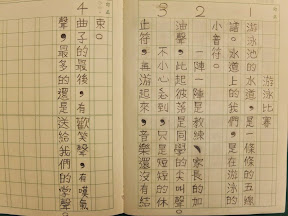 游泳比賽
1 游泳池的水道,是一條條的五線
譜。水道上的我們,是在游泳的
小音符。
2 一陣一陣是教練、家長的加
油聲,此起彼落是同學的尖叫聲。
3 不小心到,只是短短的休
止符,再游起來,音樂還沒有結
束。
4 曲子的最後,有歡笑聲,有嘆氣
聲,最多的還是送給我們的掌聲。